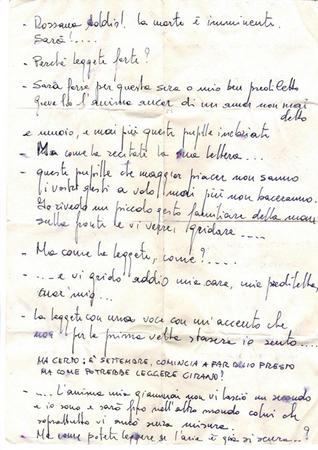 - Rossana addio! la morte è imminente.
Sarà!....
- Perché leggete forte?
- Sarà forse per questa sera o mio ben prediletto
greve ho l'anima ancor di un amor non mai
detto
e muoio, e mai più queste pupille inebriate
- Ma come la recitate la sua lettera...
- queste pupille che maggior piacer non sanno
i vostri gesti a volo, mai più non baceranno.
Io rivedo un piccolo gesto familiare della man
sulla fronte e vi vorrei gridare ----
- Ma come la leggete, come?....
- ...e vi grido addio mia cara, mia prediletta,
tesor mio...
- la leggete con una voce con un'accento che
non per la prima volta stasera io sento....
MA CERTO: È SETTEMBRE, COMINCIA A FAR BUIO PRESTO
MA COME POTREBBE LEGGERE CIRANO!
- .... L'anima mia giammai non vi lasciò un secondo
e io sono e sarò fin nell'altro mondo colui che
soprattutto vi amò senza misura.
Ma come potete leggere se l'aria è già sì scura...?